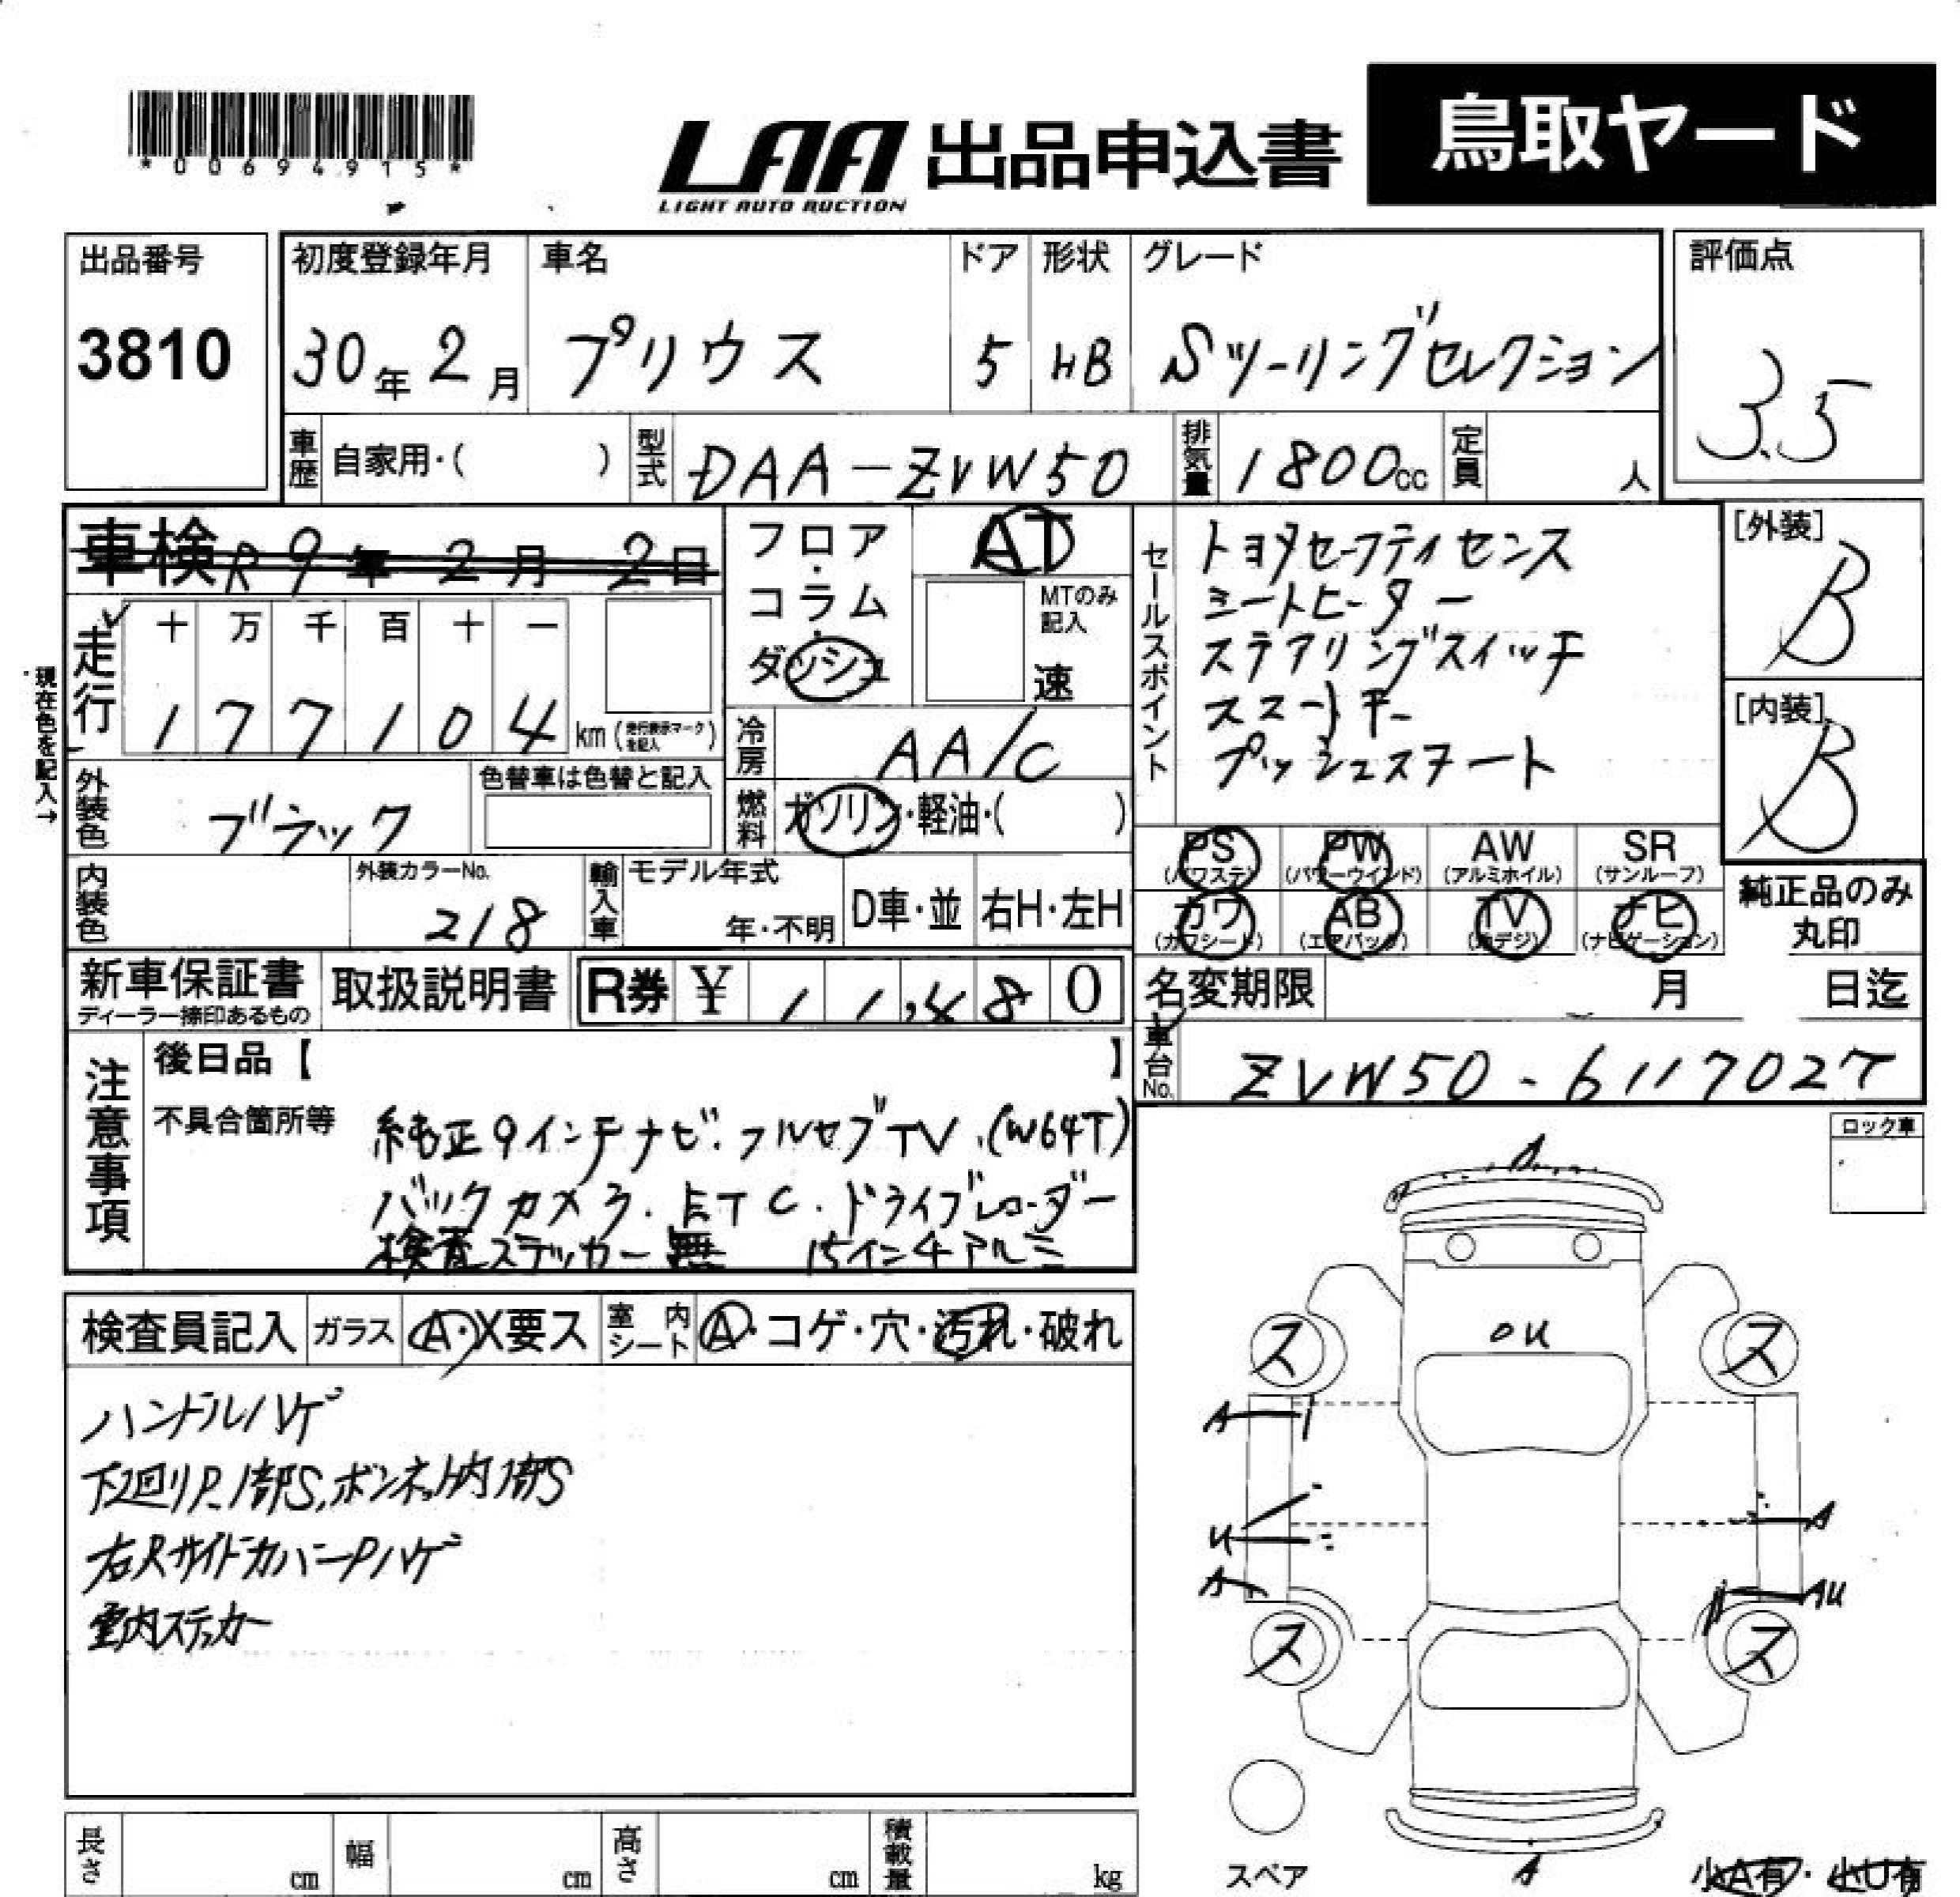 *00694915*
LAA 出品申込書 鳥取ヤード
LIGHT AUTO AUCTION
出品番号 初度登録年月 車名 ドア 形状 グレード 評価点
3810 30年 2月 プリウス 5 HB Sツーリングセレクション 3.5
車歴 自家用・( ) 型式 DAA-ZVW50 排気量 1800cc 定員 人
車検 R9年 2月 2日
フロア・コラム・ダッシュ AT
MTのみ記入
速
セールスポイント
トヨタセーフティセンス
シートヒーター
ステアリングスイッチ
スマートキー
プッシュスタート
[外装]
B
[内装]
B
走行 十 万 千 百 十 一
1 7 7 1 0 4 km (走行表示マークを記入)
現在色を記入→
冷房 AA/C
外装色 ブラック 色替車は色替と記入
燃料 ガソリン・軽油・( )
PS PW AW SR
(パワステ) (パワーウインド) (アルミホイル) (サンルーフ)
カワ AB TV ナビ
(カワシート) (エアバック) (地デジ) (ナビゲーション)
純正品のみ
丸印
内装色 外装カラーNo. 218 輸入車 モデル年式 年・不明 D車・並 右H・左H
新車保証書 取扱説明書 R券 ¥ 11,480 名変期限 月 日迄
ディーラー捺印あるもの
車台No. ZVW50-6117027
注意事項
後日品【 】
不具合箇所等 純正9インチナビ.フルセグTV.(W64T)
バックカメラ.ETC.ドライブレコーダー
検査ステッカー無 15インチアルミ
ロック車
検査員記入 ガラス A・X要ス 室内シート A・コゲ・穴・汚れ・破れ
ハンドルハゲ
下廻りP、1部S,ボンネット内1部S
右Rサイドカバー Pハゲ
室内ステッカー
A
OU
ス ス
A
U A
A AU
ス ス
A
スペア
小A有・小U有
長さ cm 幅 cm 高さ cm 積載量 kg